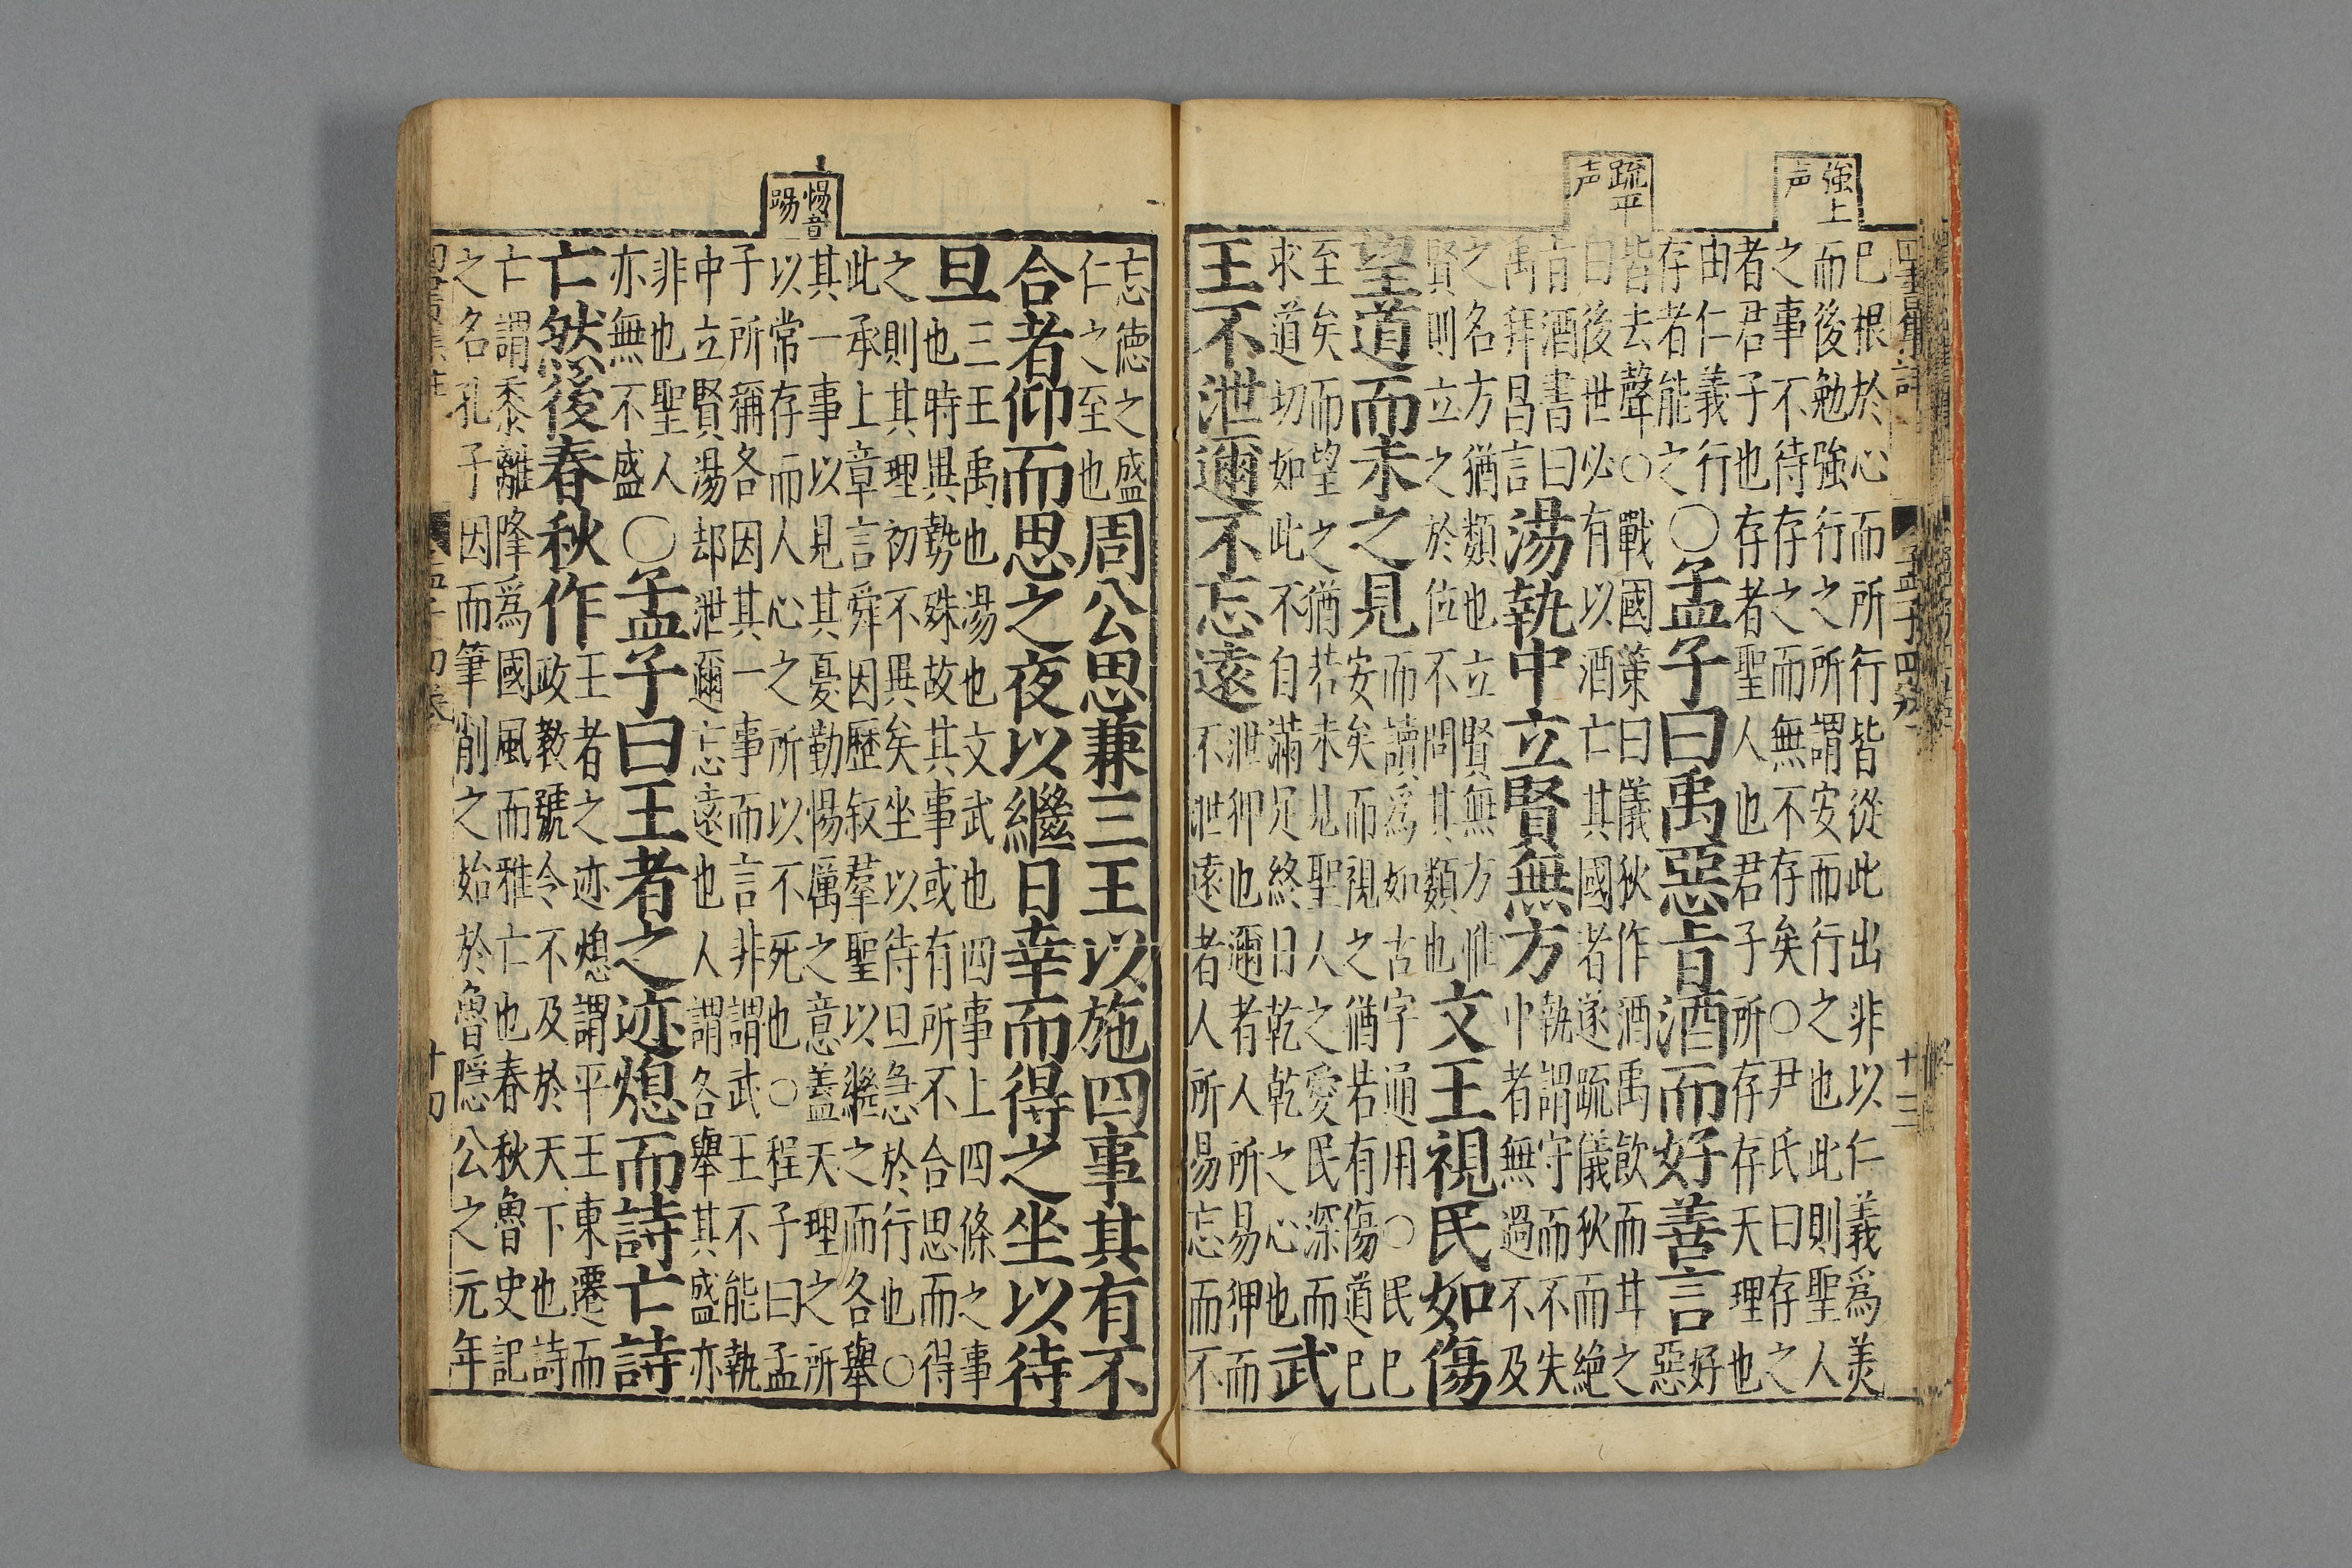 強上
声
疏平
声
已根於心而所行皆從此出非以仁義爲美
而後勉強行之所謂安而行之也此則聖人
之事不待存之而無不存矣○尹氏曰存之
者君子也存者聖人也君子所存存天理也
由仁義行
存者能之
○孟子曰禹惡旨酒而好善言
惡好
皆去聲○戰國策曰儀狄作酒禹飮而甘之
曰後世必有以酒亡其國者遂疏儀狄而絶
旨酒書曰
禹拜昌言
湯執中立賢無方
執謂守而不失
中者無過不及
之名方猶類也立賢無方惟
賢則立之於位不問其類也
文王視民如傷
望道而未之見
而讀爲如古字通用○民已
安矣而視之猶若有傷道已
至矣而望之猶若未見聖人之愛民深而
求道切如此不自滿足終日乾乾之心也
武
王不泄邇不忘遠
泄狎也邇者人所易狎而
不泄遠者人所易忘而不
四書集註
孟子四卷
十三
惕音
踢
忘德之盛
仁之至也
周公思兼三王以施四事其有不
合者仰而思之夜以繼日幸而得之坐以待
旦
三王禹也湯也文武也四事上四條之事
也時異勢殊故其事或有所不合思而得
之則其理初不異矣坐以待旦急於行也○
此承上章言舜因歷叙羣聖以繼之而各舉
其一事以見其憂勤惕厲之意蓋天理之所
以常存而人心之所以不死也○程子曰孟
子所稱各因其一事而言非謂武王不能執
中立賢湯却泄邇忘遠也人謂各舉其盛亦
非也聖人
亦無不盛
○孟子曰王者之迹熄而詩亡詩
亡然後春秋作
王者之迹熄謂平王東遷而
政敎號令不及於天下也詩
亡謂黍離降爲國風而雅亡也春秋魯史記
之名孔子因而筆削之始於魯隱公之元年
四書集註
孟子四卷
十四